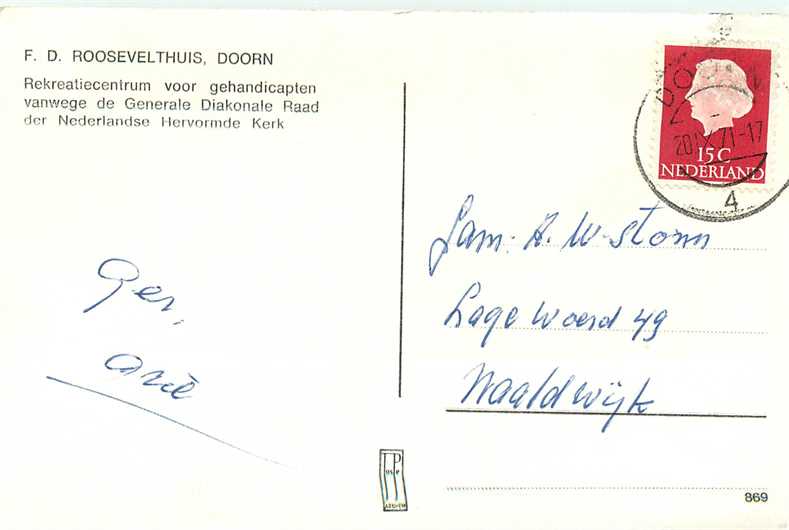 F. D. ROOSEVELTHUIS, DOORN
Rekreatiecentrum voor gehandicapten
vanwege de Generale Diakonale Raad
der Nederlandse Hervormde Kerk
DOORN
20 IX 71-17
4
15C
NEDERLAND
Fam. A. W-storm
Lage Woerd 49
Waaldwijk
Ger,
Arie
JosPé
869